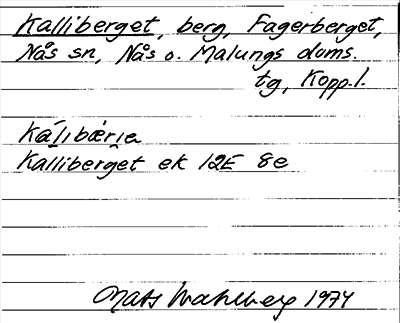 Kalliberget, berg, Fagerberget,
Nås sn, Nås o. Malungs doms.
tg, Kopp.l.
Kálibæ̀rịa
Kalliberget ek 12E 8e
Mats Wahlberg 1974